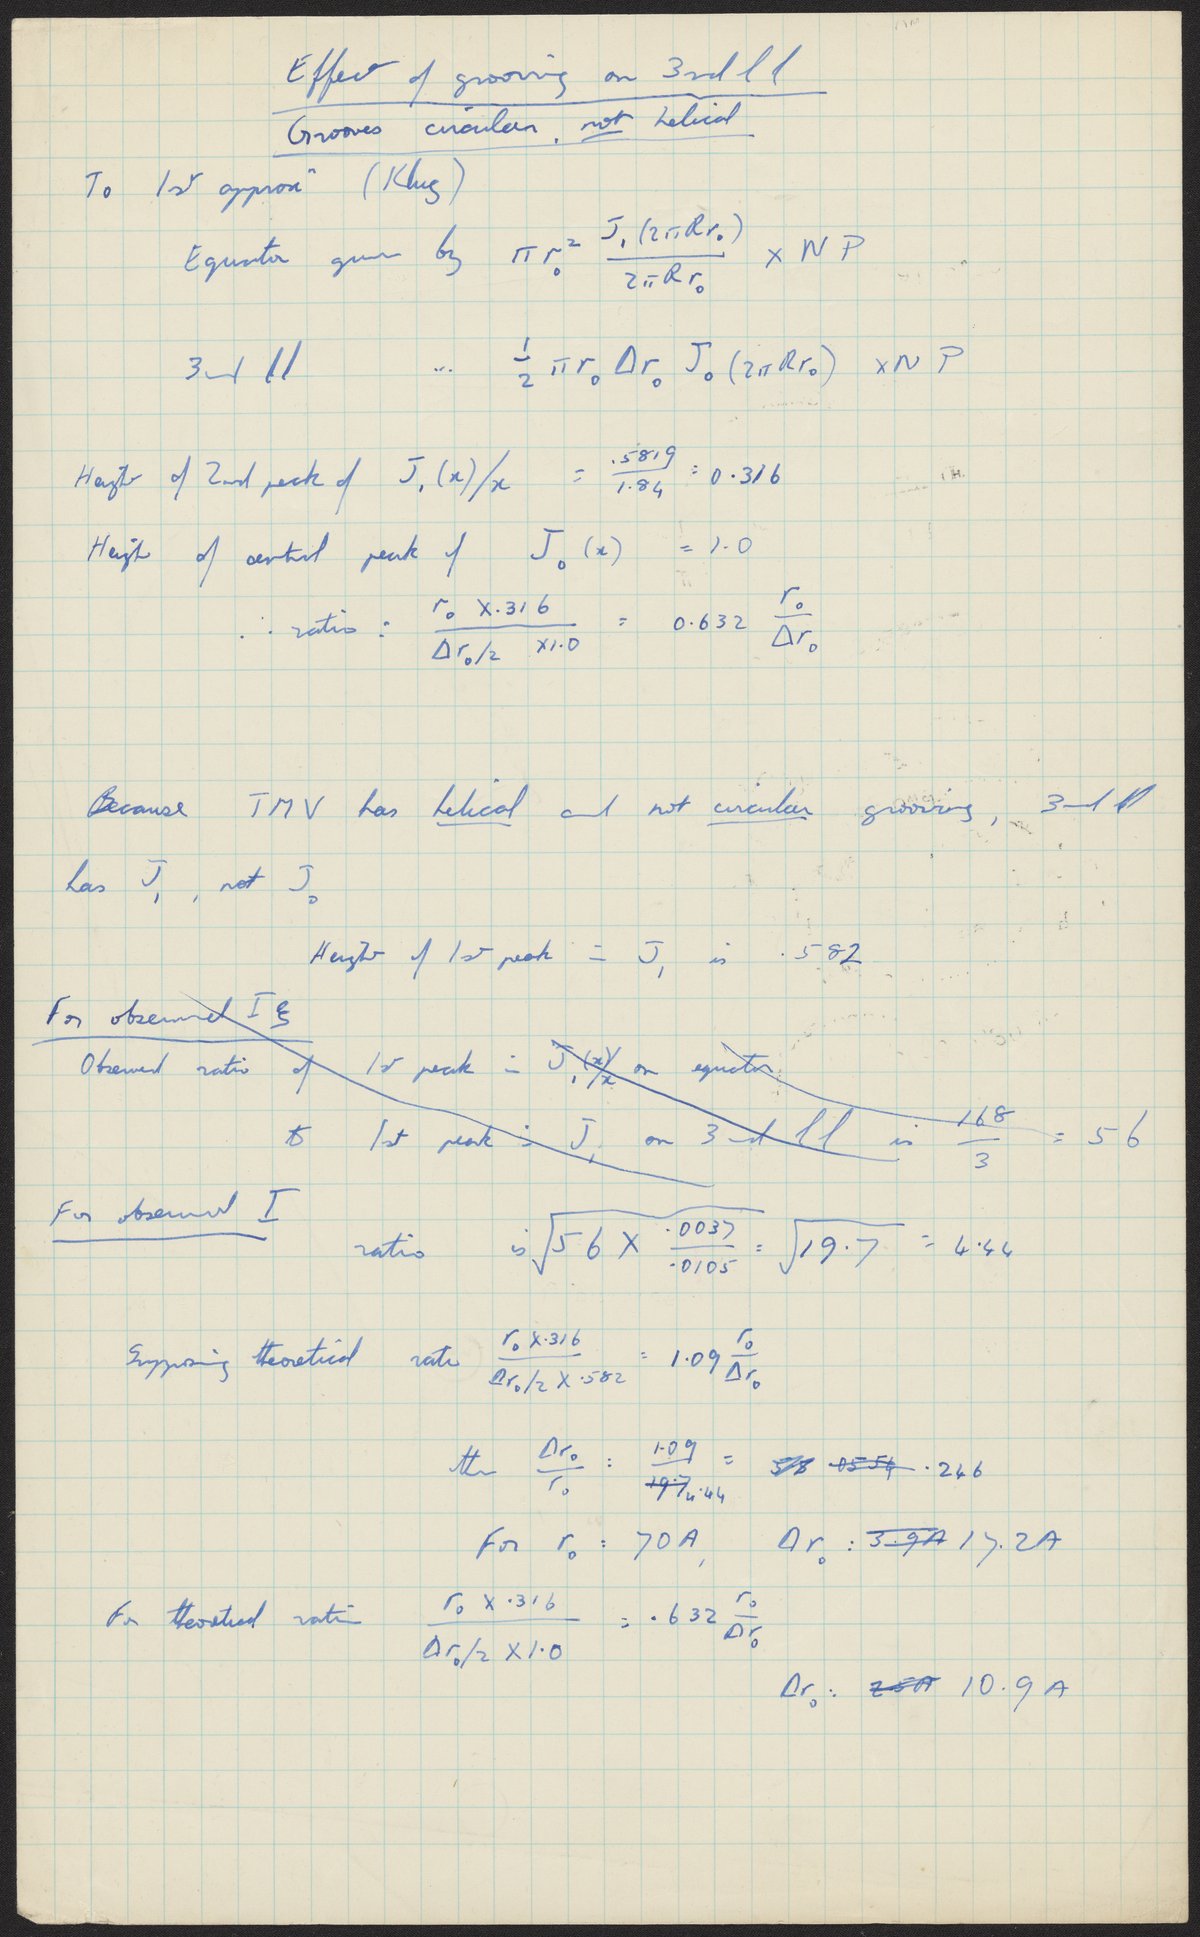 Effect of grooving on 3rd ll
Grooves circular, not helical
To 1st approxn (Klug)
Equator given by πr₀² J₁(2πRr₀)/2πRr₀ × N P
3rd ll ... ½ πr₀ Δr₀ J₀(2πRr₀) × N P
Height of 2nd peak of J₁(x)/x = .5819/1.84 = 0.316
Height of central peak of J₀(x) = 1.0
∴ ratio = r₀ × .316 / Δr₀/2 × 1.0 = 0.632 r₀/Δr₀
Because TMV has helical and not circular grooving, 3rd ll
has J₁, not J₀
Height of 1st peak in J₁ is .582
For observed I ξ
Observed ratio of 1st peak in J₁(x)/x on equator
to 1st peak in J₁ on 3rd ll is 168/3 = 56
For observed I
ratio is √56 × .0037/.0105 = √19.7 = 4.44
Supposing theoretical ratio r₀ × .316 / Δr₀/2 × .582 = 1.09 r₀/Δr₀
then Δr₀/r₀ = 1.09/19.7 4.44 = .0554 .246
For r₀ = 70A, Δr₀ = 3.9A 17.2A
For theoretical ratio r₀ × .316 / Δr₀/2 × 1.0 = .632 r₀/Δr₀
Δr₀ = 10.9A